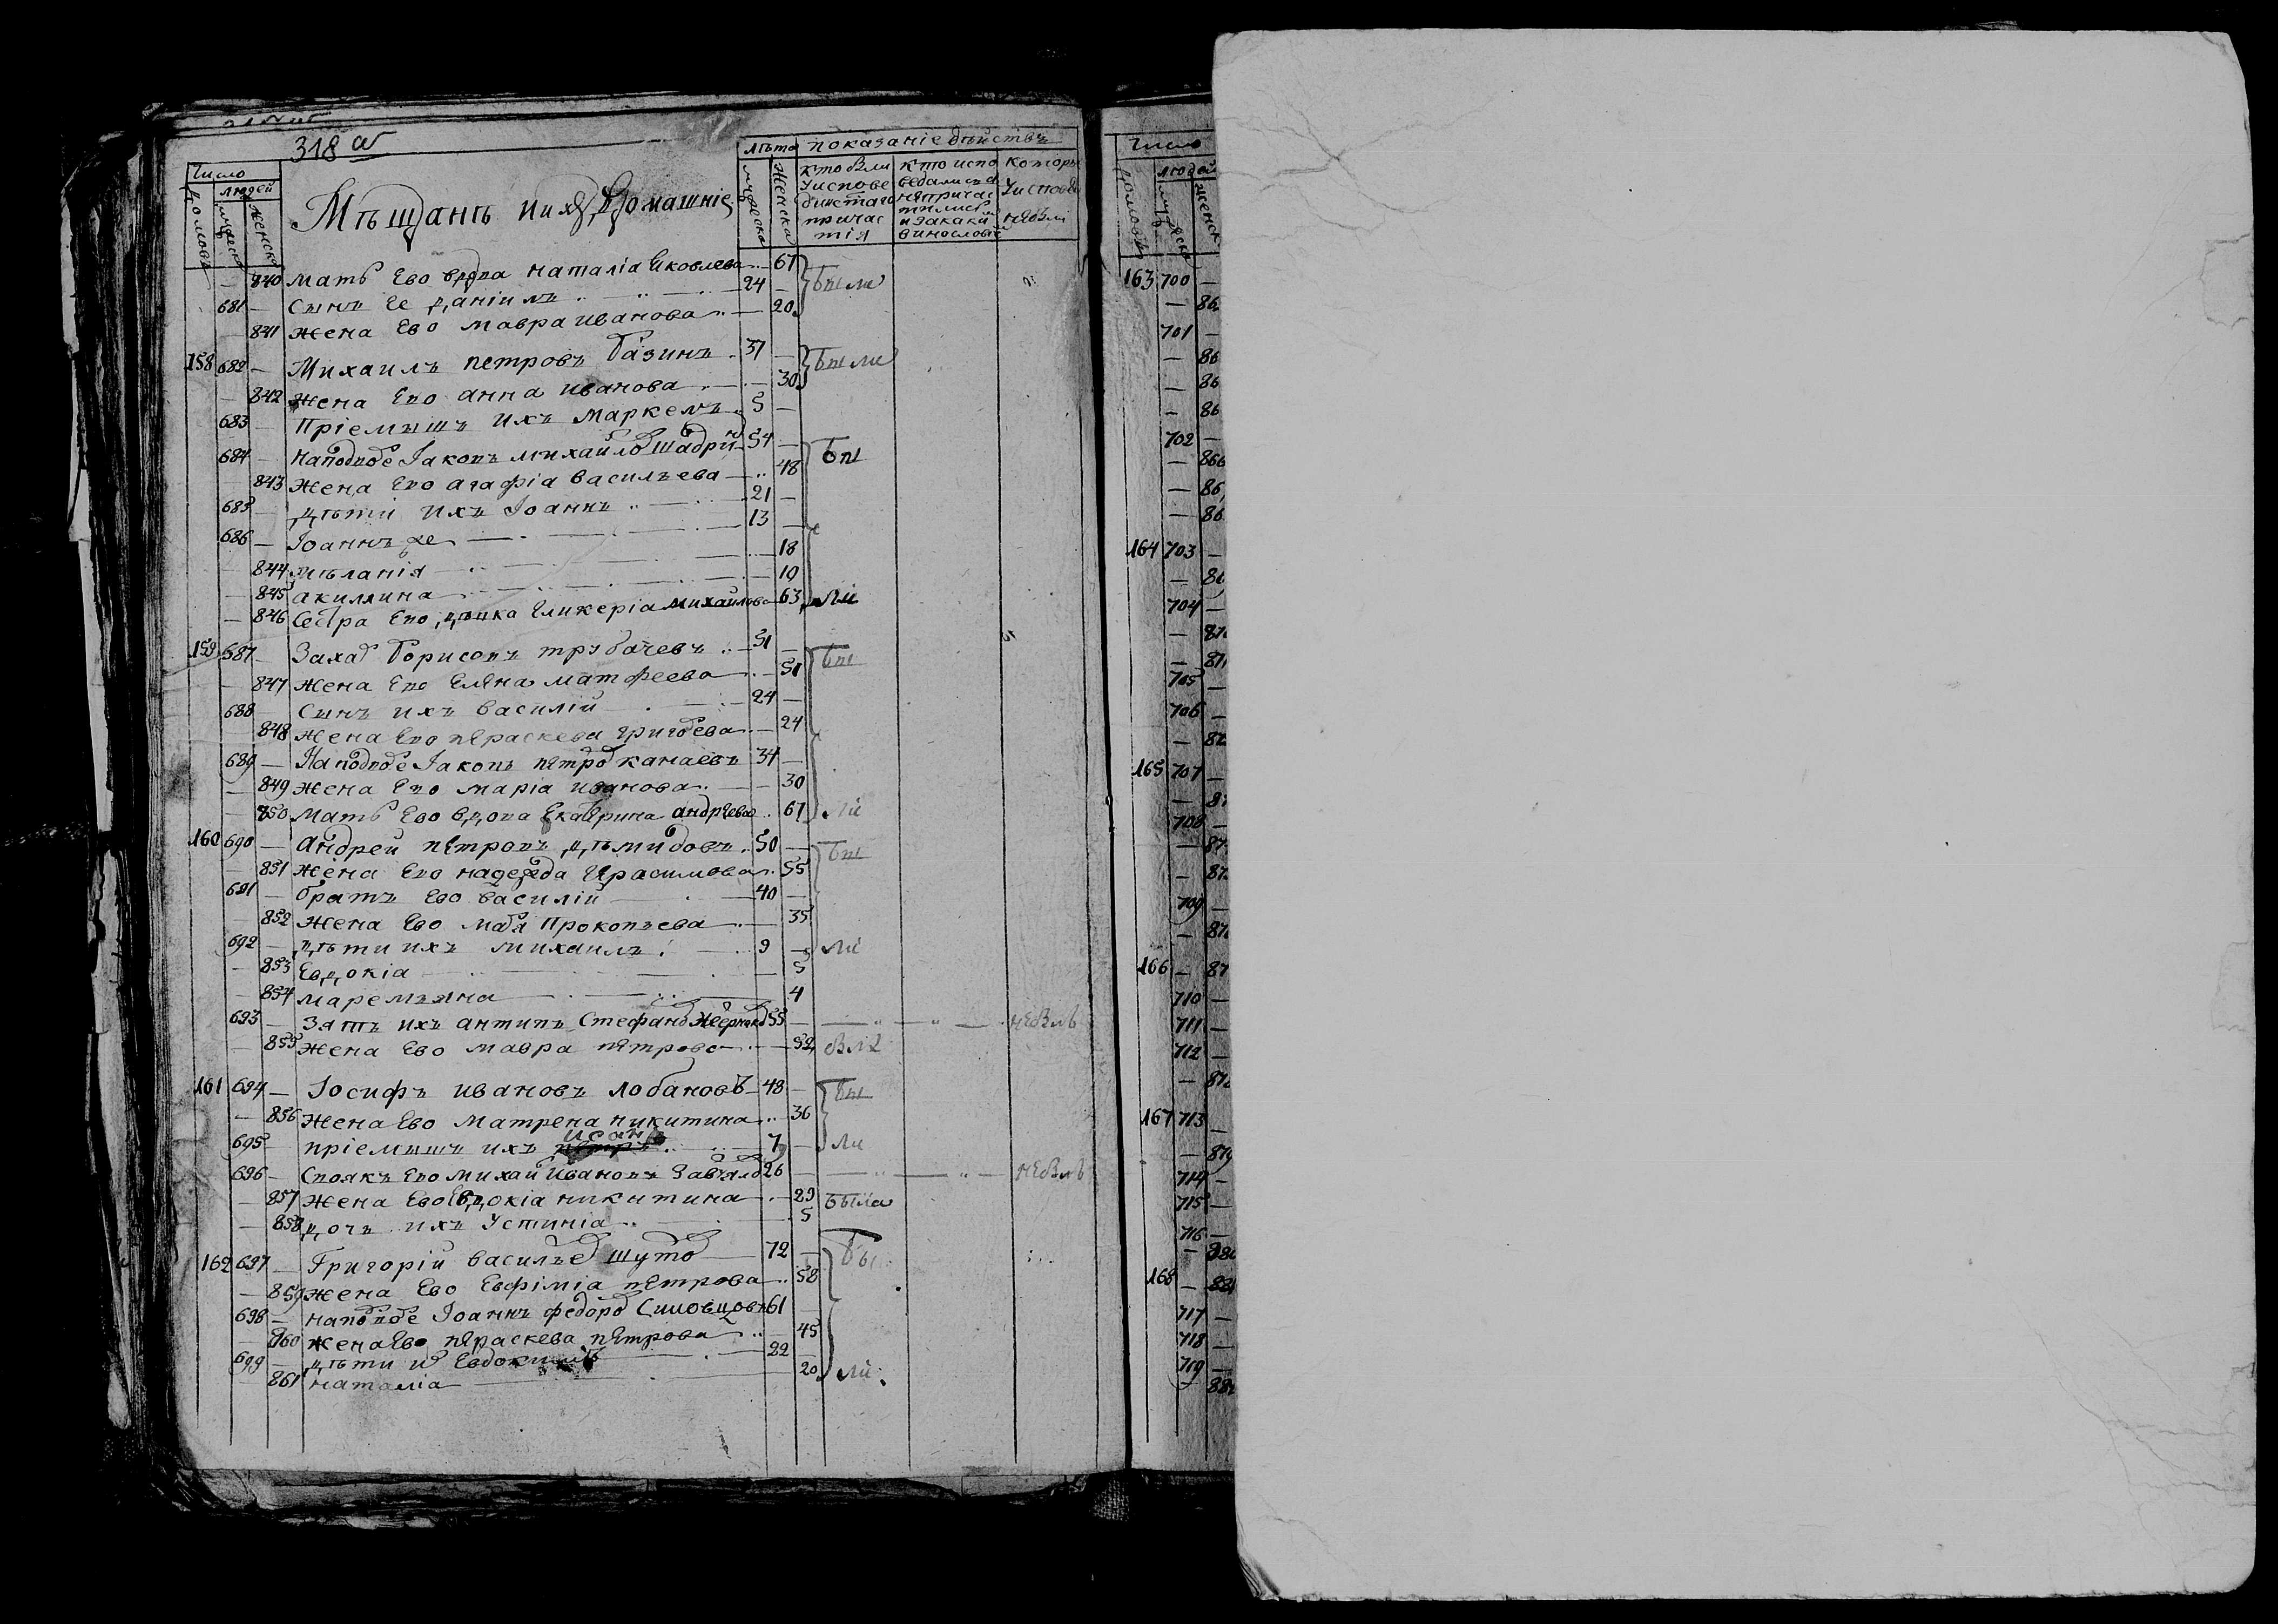 318 об
Число
людей
домовъ
мужеска
женска
Мѣщанъ и ихъ домашніе
лѣта
мужеска
женска
показаніе дѣйствъ
кто были
у испове
ди и с̃таго
причас
тія
кто испо
ведались а
не причас
тились
и за какимъ
винословіемъ
которы
у исповеди
не были
— 840 мать ево вдова наталіа яковлева — 67 были
681 — сынъ ее даніилъ 24 —
— 841 жена ево мавра иванова — 20
158 682 — Михаилъ петровъ базинъ 37 — были
— 842 жена ево анна иванова — 30
683 — пріемышъ ихъ маркелъ 5 —
684 — на подворе Іаковъ михайлов шадрин 54 — бы
— 843 жена ево агафіа васильева — 48
685 — дѣти ихъ Іоаннъ 21 —
686 — Іоаннъ же 13 —
— 844 мѣланія — 18
— 845 акилина — 10
— 846 сестра ево дѣвка гликеріа михайлова 63 ли
159 687 — Захар борисовъ трубачевъ 51 — бы
— 847 жена ево елена матфеева — 51
688 — сынъ ихъ василій 24 —
— 848 жена ево параскева григорева — 24
689 — На подворе Іаковъ петров канаевъ 34 —
— 849 жена ево маріа иванова — 30
— 850 мать ево вдова екатерина андреева 67 ли
160 690 — андрей петровъ дѣмидовъ 50 — бы
— 851 жена ево надежда герасимова 55
691 — братъ ево василій 40 —
— 852 жена ево марія прокопьева — 35
692 — дѣти ихъ михаилъ 9 — ли
— 853 евдокіа — 5
— 854 маремьяна — 4
693 — зять ихъ антипъ стефанов 55 — небылъ
— 855 жена ево мавра петрова — 52 была
161 694 — Іосифъ ивановъ лобановъ 48 — бы
— 856 жена ево матрена никитина — 36
695 — пріемышъ ихъ 7 — ли
696 — своякъ ево михай ивановъ завьялов 26 — небылъ
— 857 жена ево евдокіа никитина — 29 была
— 858 дочь ихъ устиніа — 5
162 697 — Григорій васильев шутов 72 — бы
— 859 жена ево евфиміа петрова 58
698 — на подворе Іоаннъ федоров 61 —
— 860 жена ево параскева петрова — 45
699 — дѣти их евдокимъ 22 —
— 861 наталіа 20 ли
Число
людей
домовъ
мужеска
женск
163 700 —
701 —
702 —
— 866
164 703 —
704 —
705 —
706 —
165 707 —
708 —
709 —
166 —
710 —
711 —
712 —
167 713 —
— 879
714 —
715 —
716 —
168 —
717 —
718 —
719 —